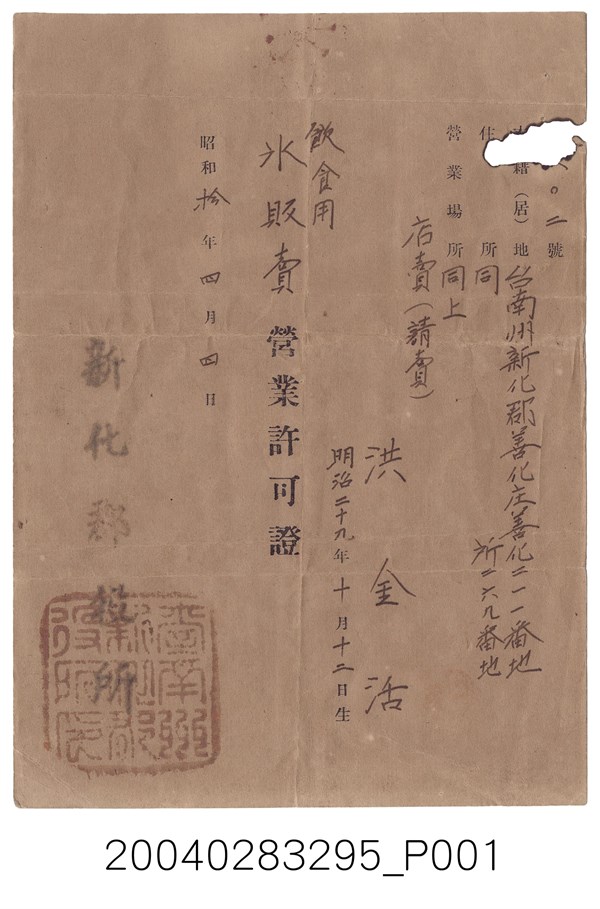 〇二號
籍(居)地 台南州新化郡善化庄善化二一一番地
住所 同所二六九番地
營業場所 同上
店賣(請賣)
洪金活
明治二十九年十月十二日生
飲食用
氷販賣營業許可證
昭和拾年四月四日
新化郡役所
臺南州
新化郡
役所印
20040283295_P001